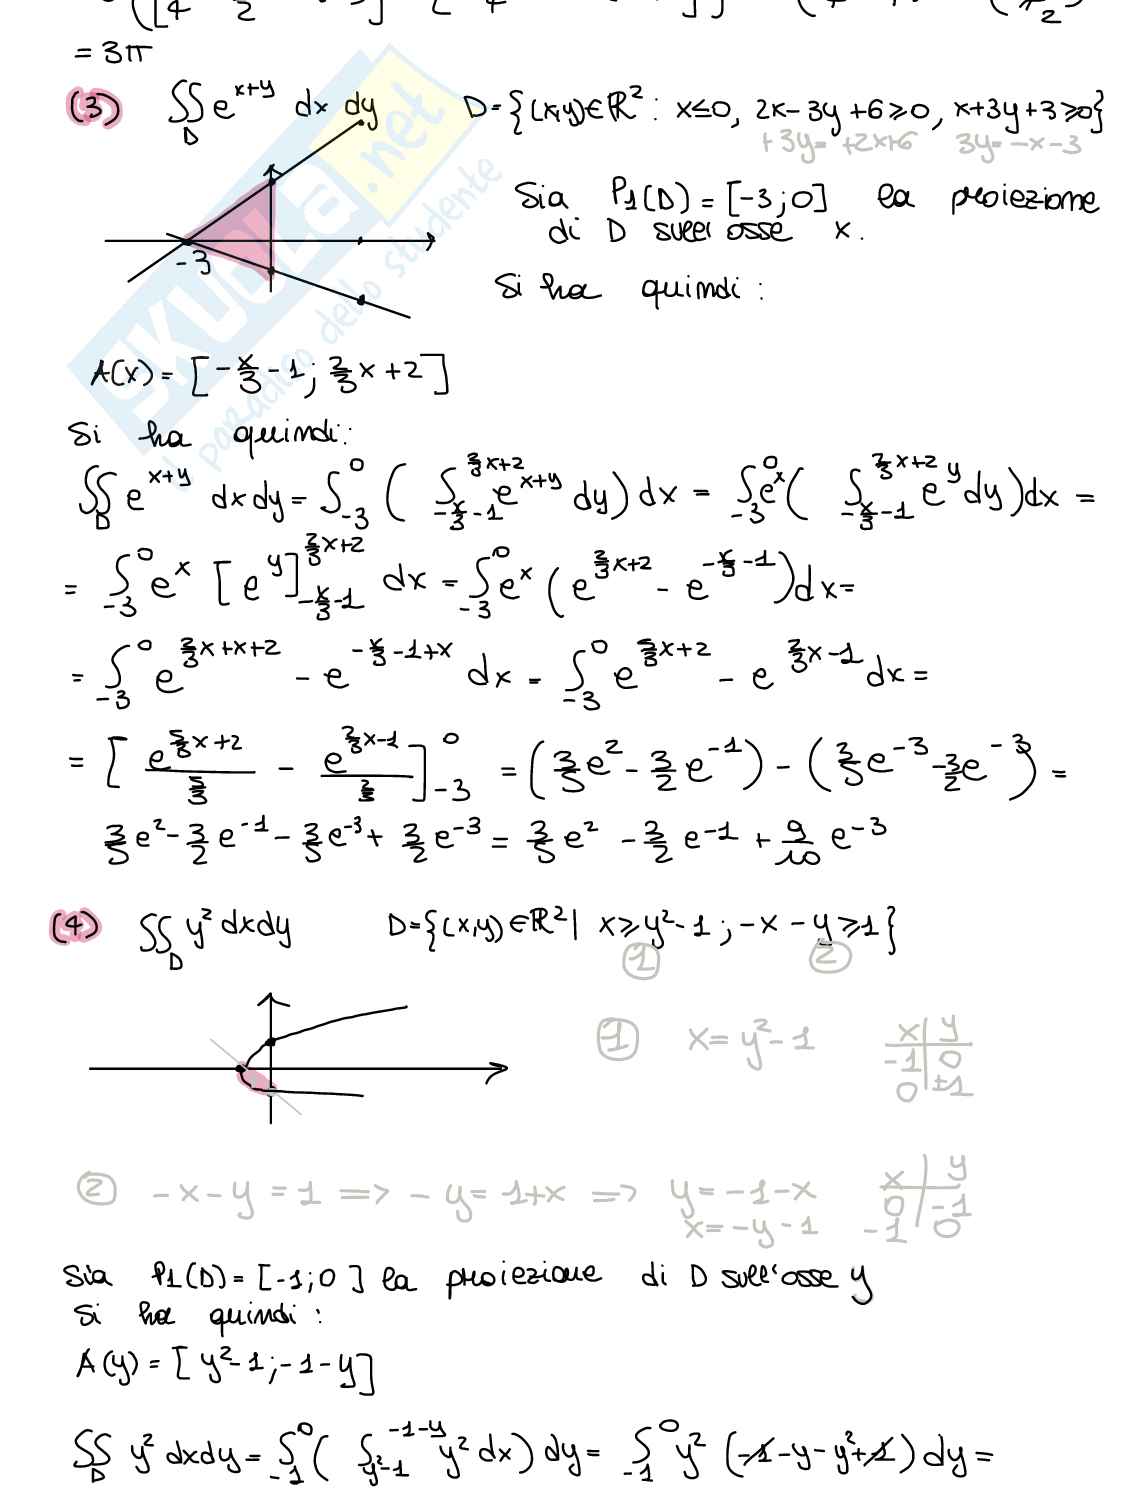 = 3π
(3) ∬_D e^{x+y} dx dy D={(x,y)∈ℝ² : x≤0, 2x-3y+6≥0, x+3y+3≥0}
+3y=+2x+6 3y=-x-3
Sia P1(D)=[-3;0] la proiezione
di D sull'asse x.
-3
Si ha quindi:
A(x)=[-x/3-1; 2/3x+2]
Si ha quindi:
∬_D e^{x+y} dxdy=∫_{-3}^0 (∫_{-x/3-1}^{2/3x+2} e^{x+y} dy)dx = ∫_{-3}^0 e^x(∫_{-x/3-1}^{2/3x+2} e^y dy)dx =
= ∫_{-3}^0 e^x [e^y]_{-x/3-1}^{2/3x+2} dx = ∫_{-3}^0 e^x (e^{2/3x+2} - e^{-x/3-1})dx=
= ∫_{-3}^0 e^{2/3x+x+2} - e^{-x/3-1+x} dx = ∫_{-3}^0 e^{5/3x+2} - e^{2/3x-1} dx =
= [e^{5/3x+2}/(5/3) - e^{2/3x-1}/(2/3)]_{-3}^0 = (3/5e²-3/2e^{-1}) - (3/5e^{-3}-3/2e^{-3}) =
3/5e²-3/2e^{-1}-3/5e^{-3}+3/2e^{-3} = 3/5e² -3/2e^{-1}+9/10e^{-3}
(4) ∬_D y² dxdy D={(x,y)∈ℝ²| x≥y²-1 ; -x-y≥1}
① ②
① x=y²-1 x y
-1 0
0 ±1
② -x-y=1 => -y=1+x => y=-1-x x y
0 -1
x=-y-1 -1 0
Sia P1(D)=[-1;0] la proiezione di D sull'asse y
Si ha quindi:
A(y)=[y²-1;-1-y]
∬_D y² dxdy=∫_{-1}^0(∫_{y²-1}^{-1-y} y² dx)dy= ∫_{-1}^0 y² (-1-y-y²+1)dy=
SKUOLA.net
il paradiso dello studente